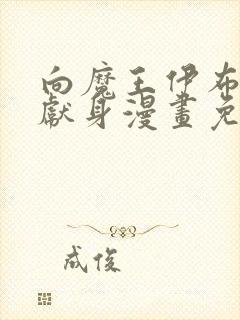 向魔王伊布
獻身漫畫免
成俊